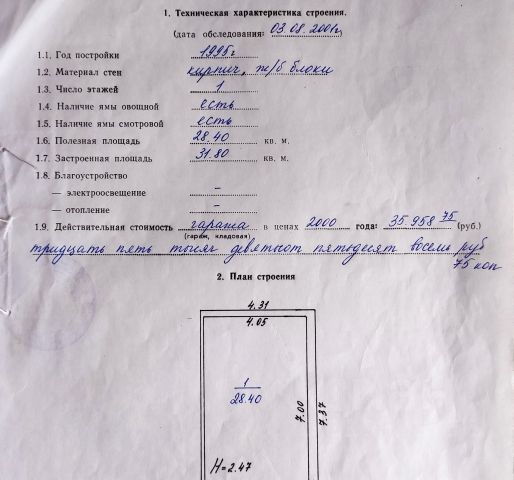 1. Техническая характеристика строения.
(дата обследования: 03.08.2001г.)
1.1. Год постройки 1995г.
1.2. Материал стен кирпич, ж/б блоки
1.3. Число этажей 1
1.4. Наличие ямы овощной есть
1.5. Наличие ямы смотровой есть
1.6. Полезная площадь 28.40 кв. м.
1.7. Застроенная площадь 31.80 кв. м.
1.8. Благоустройство
— электроосвещение –
— отопление –
1.9. Действительная стоимость гаража в ценах 2000 года: 35 958 75 (руб.)
(гараж, кладовая)
тридцать пять тысяч девятьсот пятьдесят восемь руб
75 коп
2. План строения
4.31
4.05
1
28.40
7.00
7.37
H=2.47